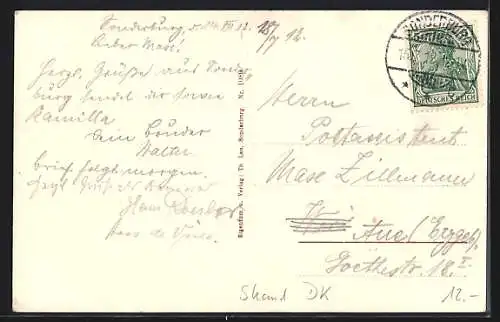 Sonderburg, d. 14. VII 12.
18/7 12.
Lieber Max!
Herzl. Grüße aus Sonder-
burg sendet dir sowie
Kamilla
Dein Bruder
Walter
Brief folgt morgen.
Hans
Eigentum u. Verlag: Th. Lau, Sonderburg. Nr.
SONDERBURG
DEUTSCHES REICH
Herrn
Postassistent
Max Zillmann
Aue (Erzgeb.)
Goethestr. 18 I.
Strand DK
12.-